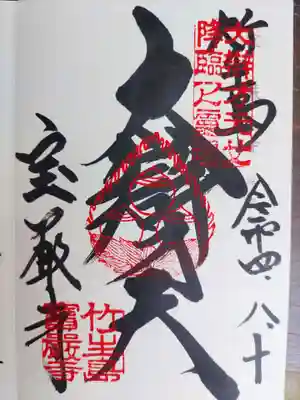 竹生島
大辯才天
宝厳寺
令和四、八、十
降臨之靈
竹生島
寶嚴寺